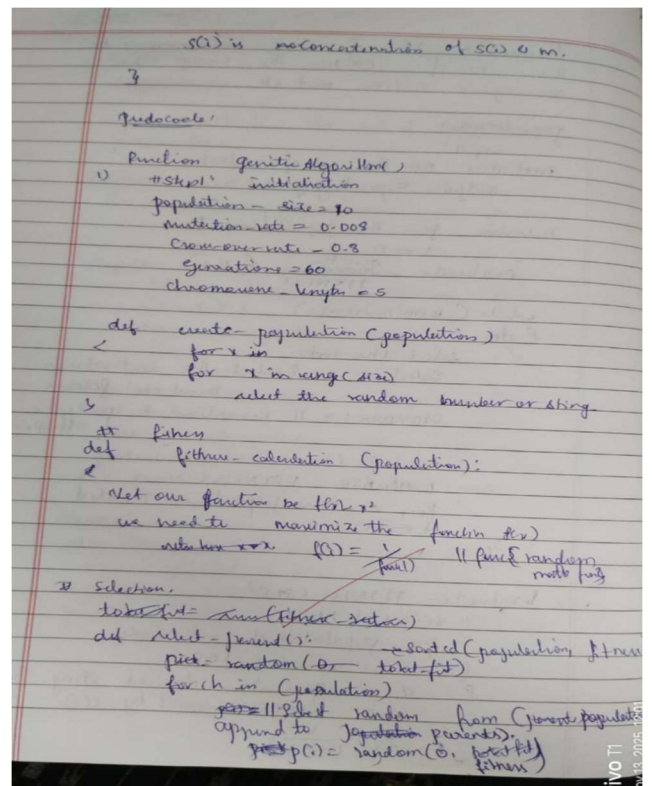 s(i) is of s(i) & m.
}
Psedocode:
Function genitic Algorithm()
1) #Step1: initialiation
population - size = 10
mutation-rate = 0.008
Cross-over rate - 0.8
genrations = 60
chromosome - length = 5
def create- population (population)
for x in
for x in range (size)
select the random number or string
}
## fitness
def fitness- calculation (population):
{
Let our function be f(x) x²
we need to maximize the function f(x)
f(i) = 1/func() || func{ random math fun}
Selection.
total-fit= sum(fitness-
def select - parent():
sorted (population, fitness
pick = random (0, total-fit)
for ch in (population)
|| Select random from (parent populat
append to parents).
p(i) = random(0, fitness)
vivo T1
Nov 13, 2025,